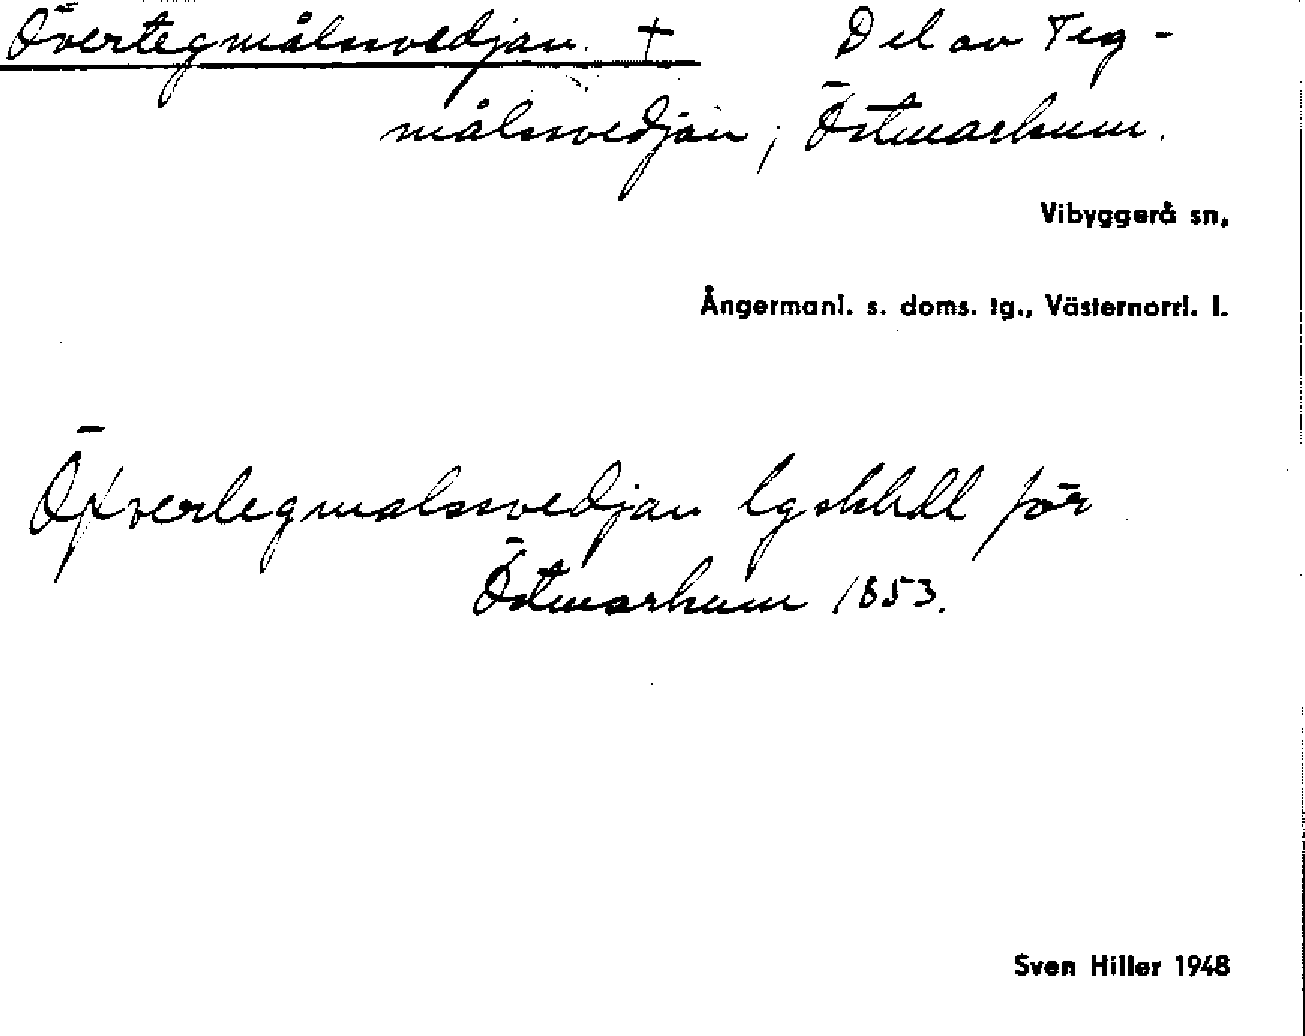 Övertegmålssvedjan. † Del av Teg-
målssvedjan, Östmarkum.
Vibyggerå sn,
Ångermanl. s. doms. tg., Västernorrl. l.
Öfvertegmalssvedjan lgskhdl för
Östmarkum 1853.
Sven Hiller 1948